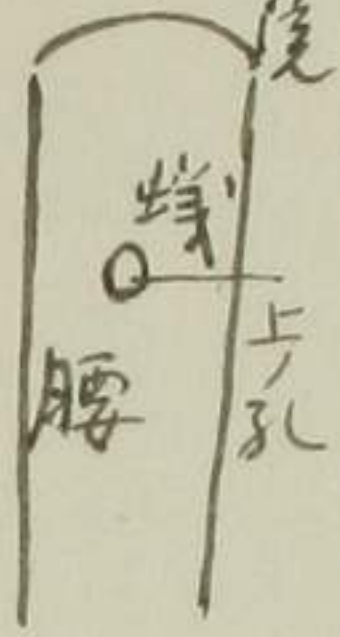 蟻
上ノ孔
腰